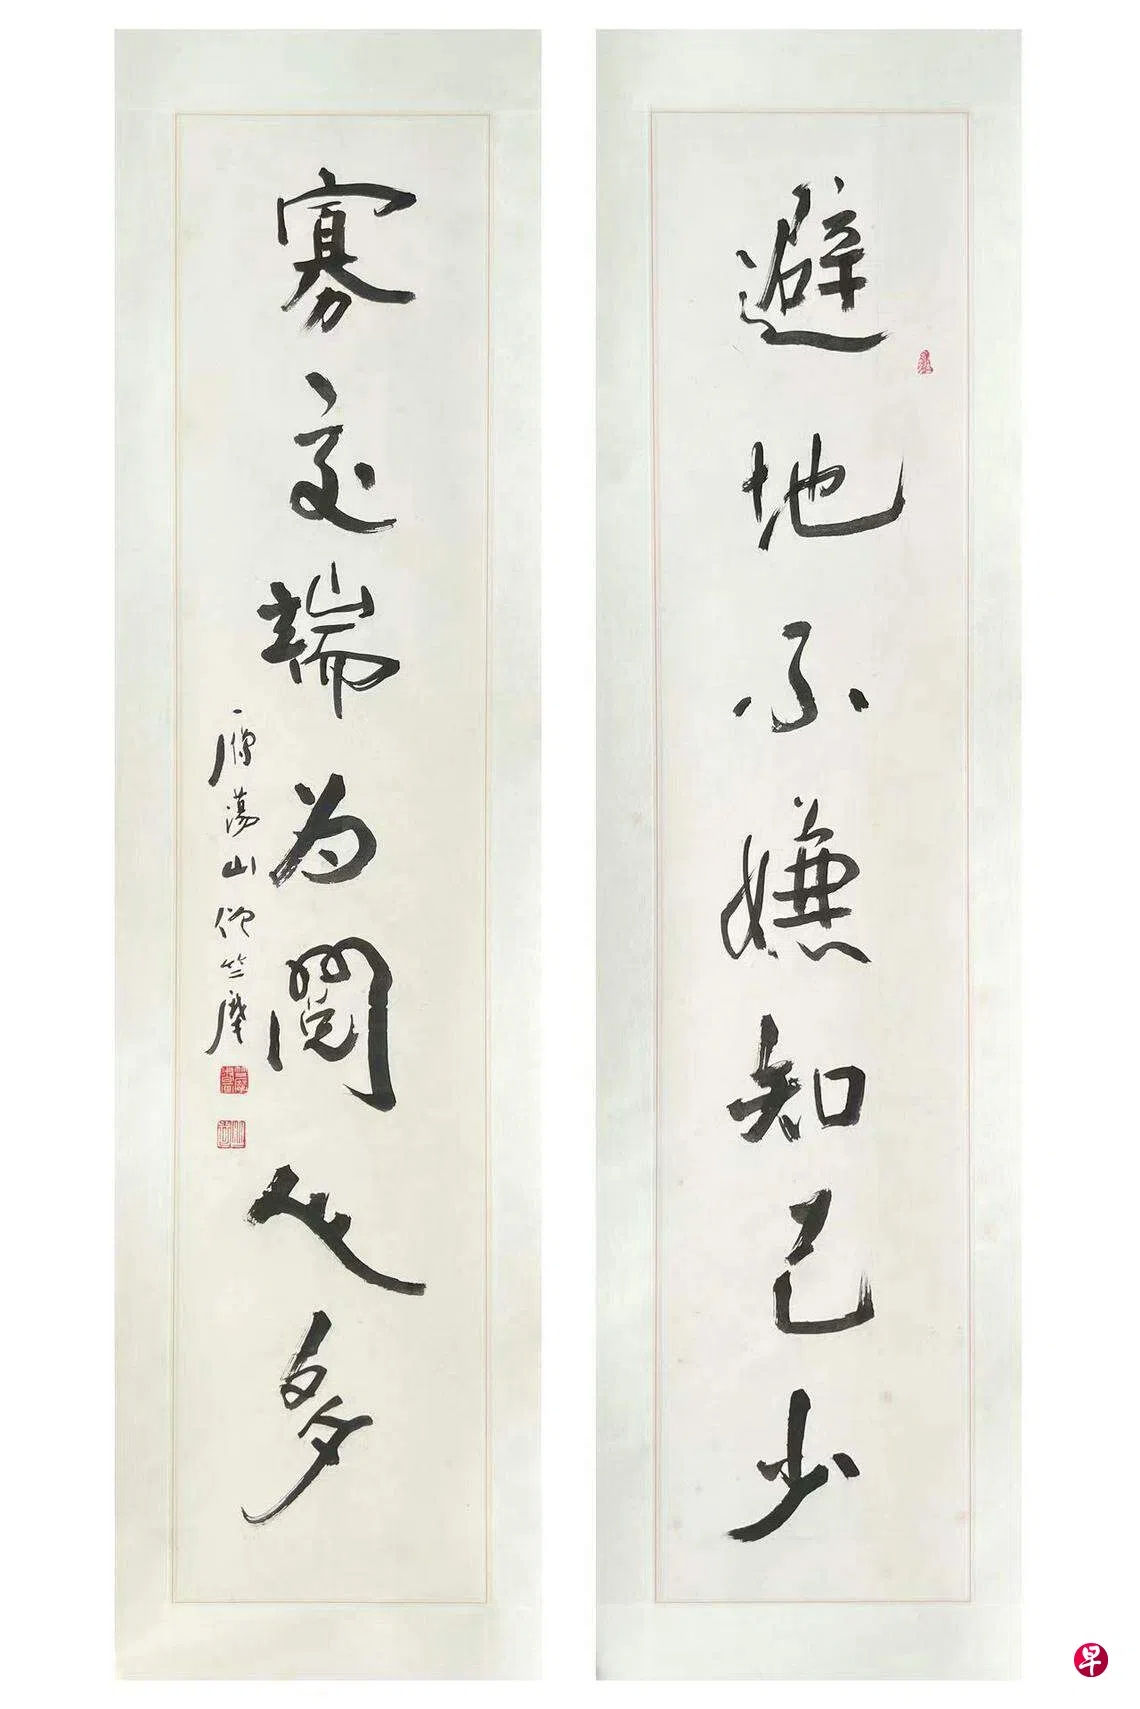 避地不嫌知己少
寡交端为閱人多
雁蕩山僧竺摩
早